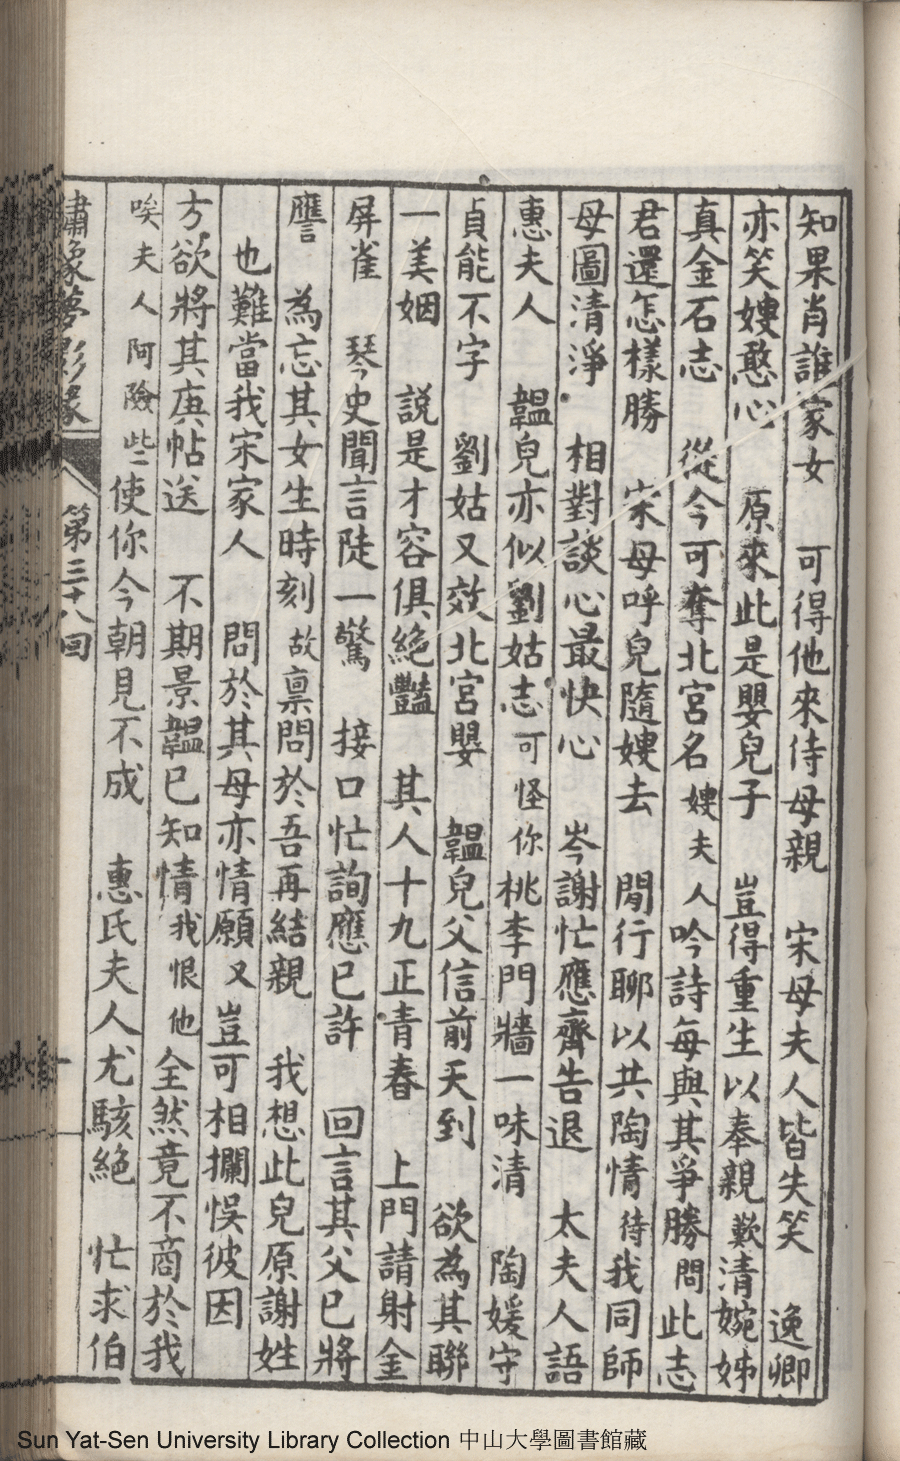 知果肖誰家女　可得他來侍母親　宋母夫人皆失笑　逸卿
亦笑嫂憨心　原來此是嬰兒子　豈得重生以奉親歎清婉姊
真金石志　從今可奪北宮名嫂夫人吟詩每與其爭勝問此志
君還怎樣勝　宋母呼兒隨嫂去　閒行聊以共陶情待我同師
母圖清淨　相對談心最快心　岑謝忙應齊告退　太夫人語
惠夫人　韞兒亦似劉姑志可怪你桃李門牆一味清　陶媛守
貞能不字　劉姑又效北宮嬰　韞兒父信前天到　欲為其聯
一美姻　説是才容俱絕豔　其人十九正青春　上門請射金
屏雀　琴史聞言陡一驚　接口忙詢應已許　回言其父已將
鷹言　為忘其女生時刻故稟問於吾再結親　我想此兒原謝姓
也難當我宋家人　問於其母亦情願又豈可相攔悞彼因
方欲將其庚帖送　不期景韞已知情我恨他全然竟不商於我
唉夫人阿險些使你今朝見不成　惠氏夫人尤駭絕　忙求伯
繡像夢影緣　第三十八回
Sun Yat-Sen University Library Collection 中山大學圖書館藏